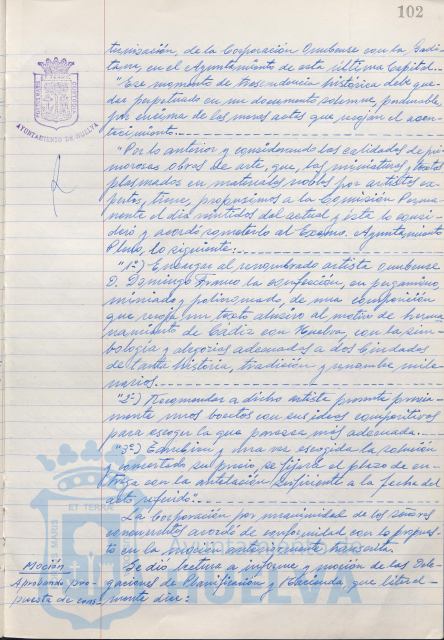 102
ternización, de la Corporación Onubense con la Gadi-
tana, en el Ayuntamiento de esta última Capital.-
"Ese momento de trascendencia histórica debe que-
dar perpetuado en un documento solemne, perdurable
por encima de las meras actas que recojan el acon-
tecimiento.
AYUNTAMIENTO DE HUELVA
"Por lo anterior y considerando las calidades de pri-
morosas obras de arte, que, las miniaturas y textos
plasmados en materiales nobles por artistas ex-
pertos, tiene, propusimos a la Comisión Perma-
nente el día veintidos del actual y ésta lo consi-
deró y acordó someterlo al Excmo. Ayuntamiento
Pleno, lo siguiente:
"1º) Encargar al renombrado artista onubense
D. Domingo Franco la confección, en pergamino,
miniado y policromado, de una composición
que recoja un texto alusivo al motivo de herma-
namiento de Cádiz con Huelva, con la sim-
bología y alegorías adecuadas a dos Ciudades
de tanta historia, tradición y renombre mile-
narios.
"2º) Recomendar a dicho artista presente previa-
mente unos bocetos con sus ideas compositivas
para escoger la que parezca más adecuada.
"3º) Estudiar y una vez escogida la solución
y concertado su precio, se fijará el plazo de en-
trega con la antelación suficiente a la fecha del
acto referido".
La Corporación por unanimidad de los señores
concurrentes acordó de conformidad con lo propues-
to en la moción anteriormente transcrita.
Moción
Aprobando pro-
puesta de cons-
Se dió lectura a informe y moción de las Dele-
gaciones de Planificación y Hacienda, que literal-
mente dice:
ET TERRA
MARIS
HUELVA